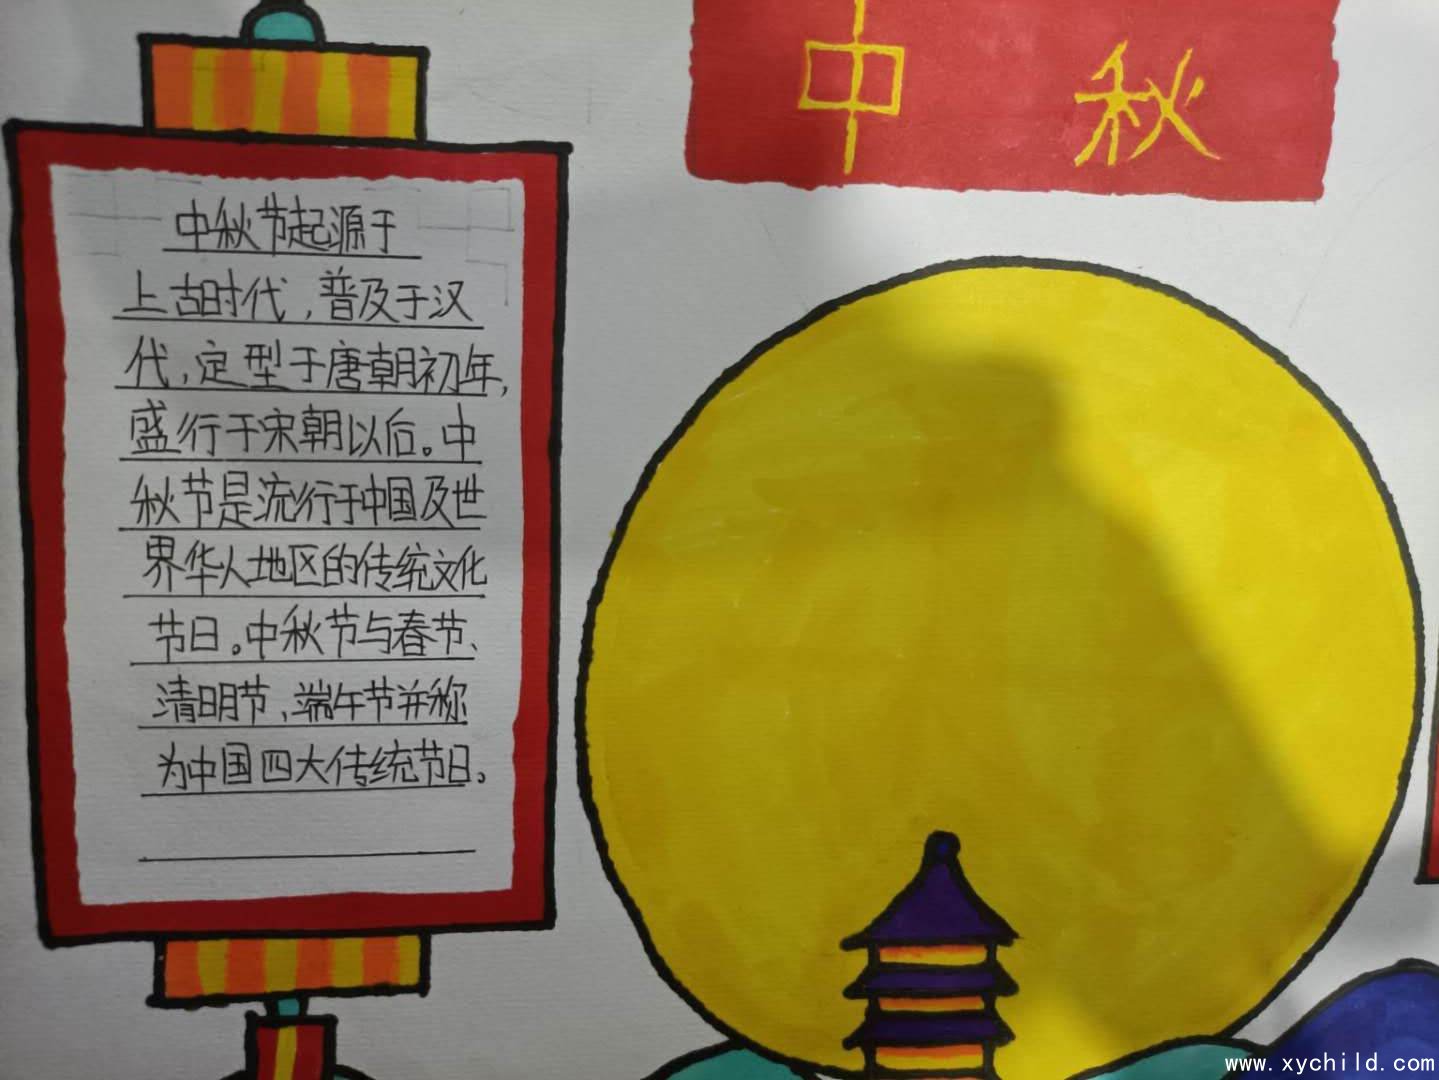 中秋
中秋节起源于
上古时代,普及于汉
代,定型于唐朝初年,
盛行于宋朝以后。中
秋节是流行于中国及世
界华人地区的传统文化
节日。中秋节与春节、
清明节、端午节并称
为中国四大传统节日。
www.xychild.com